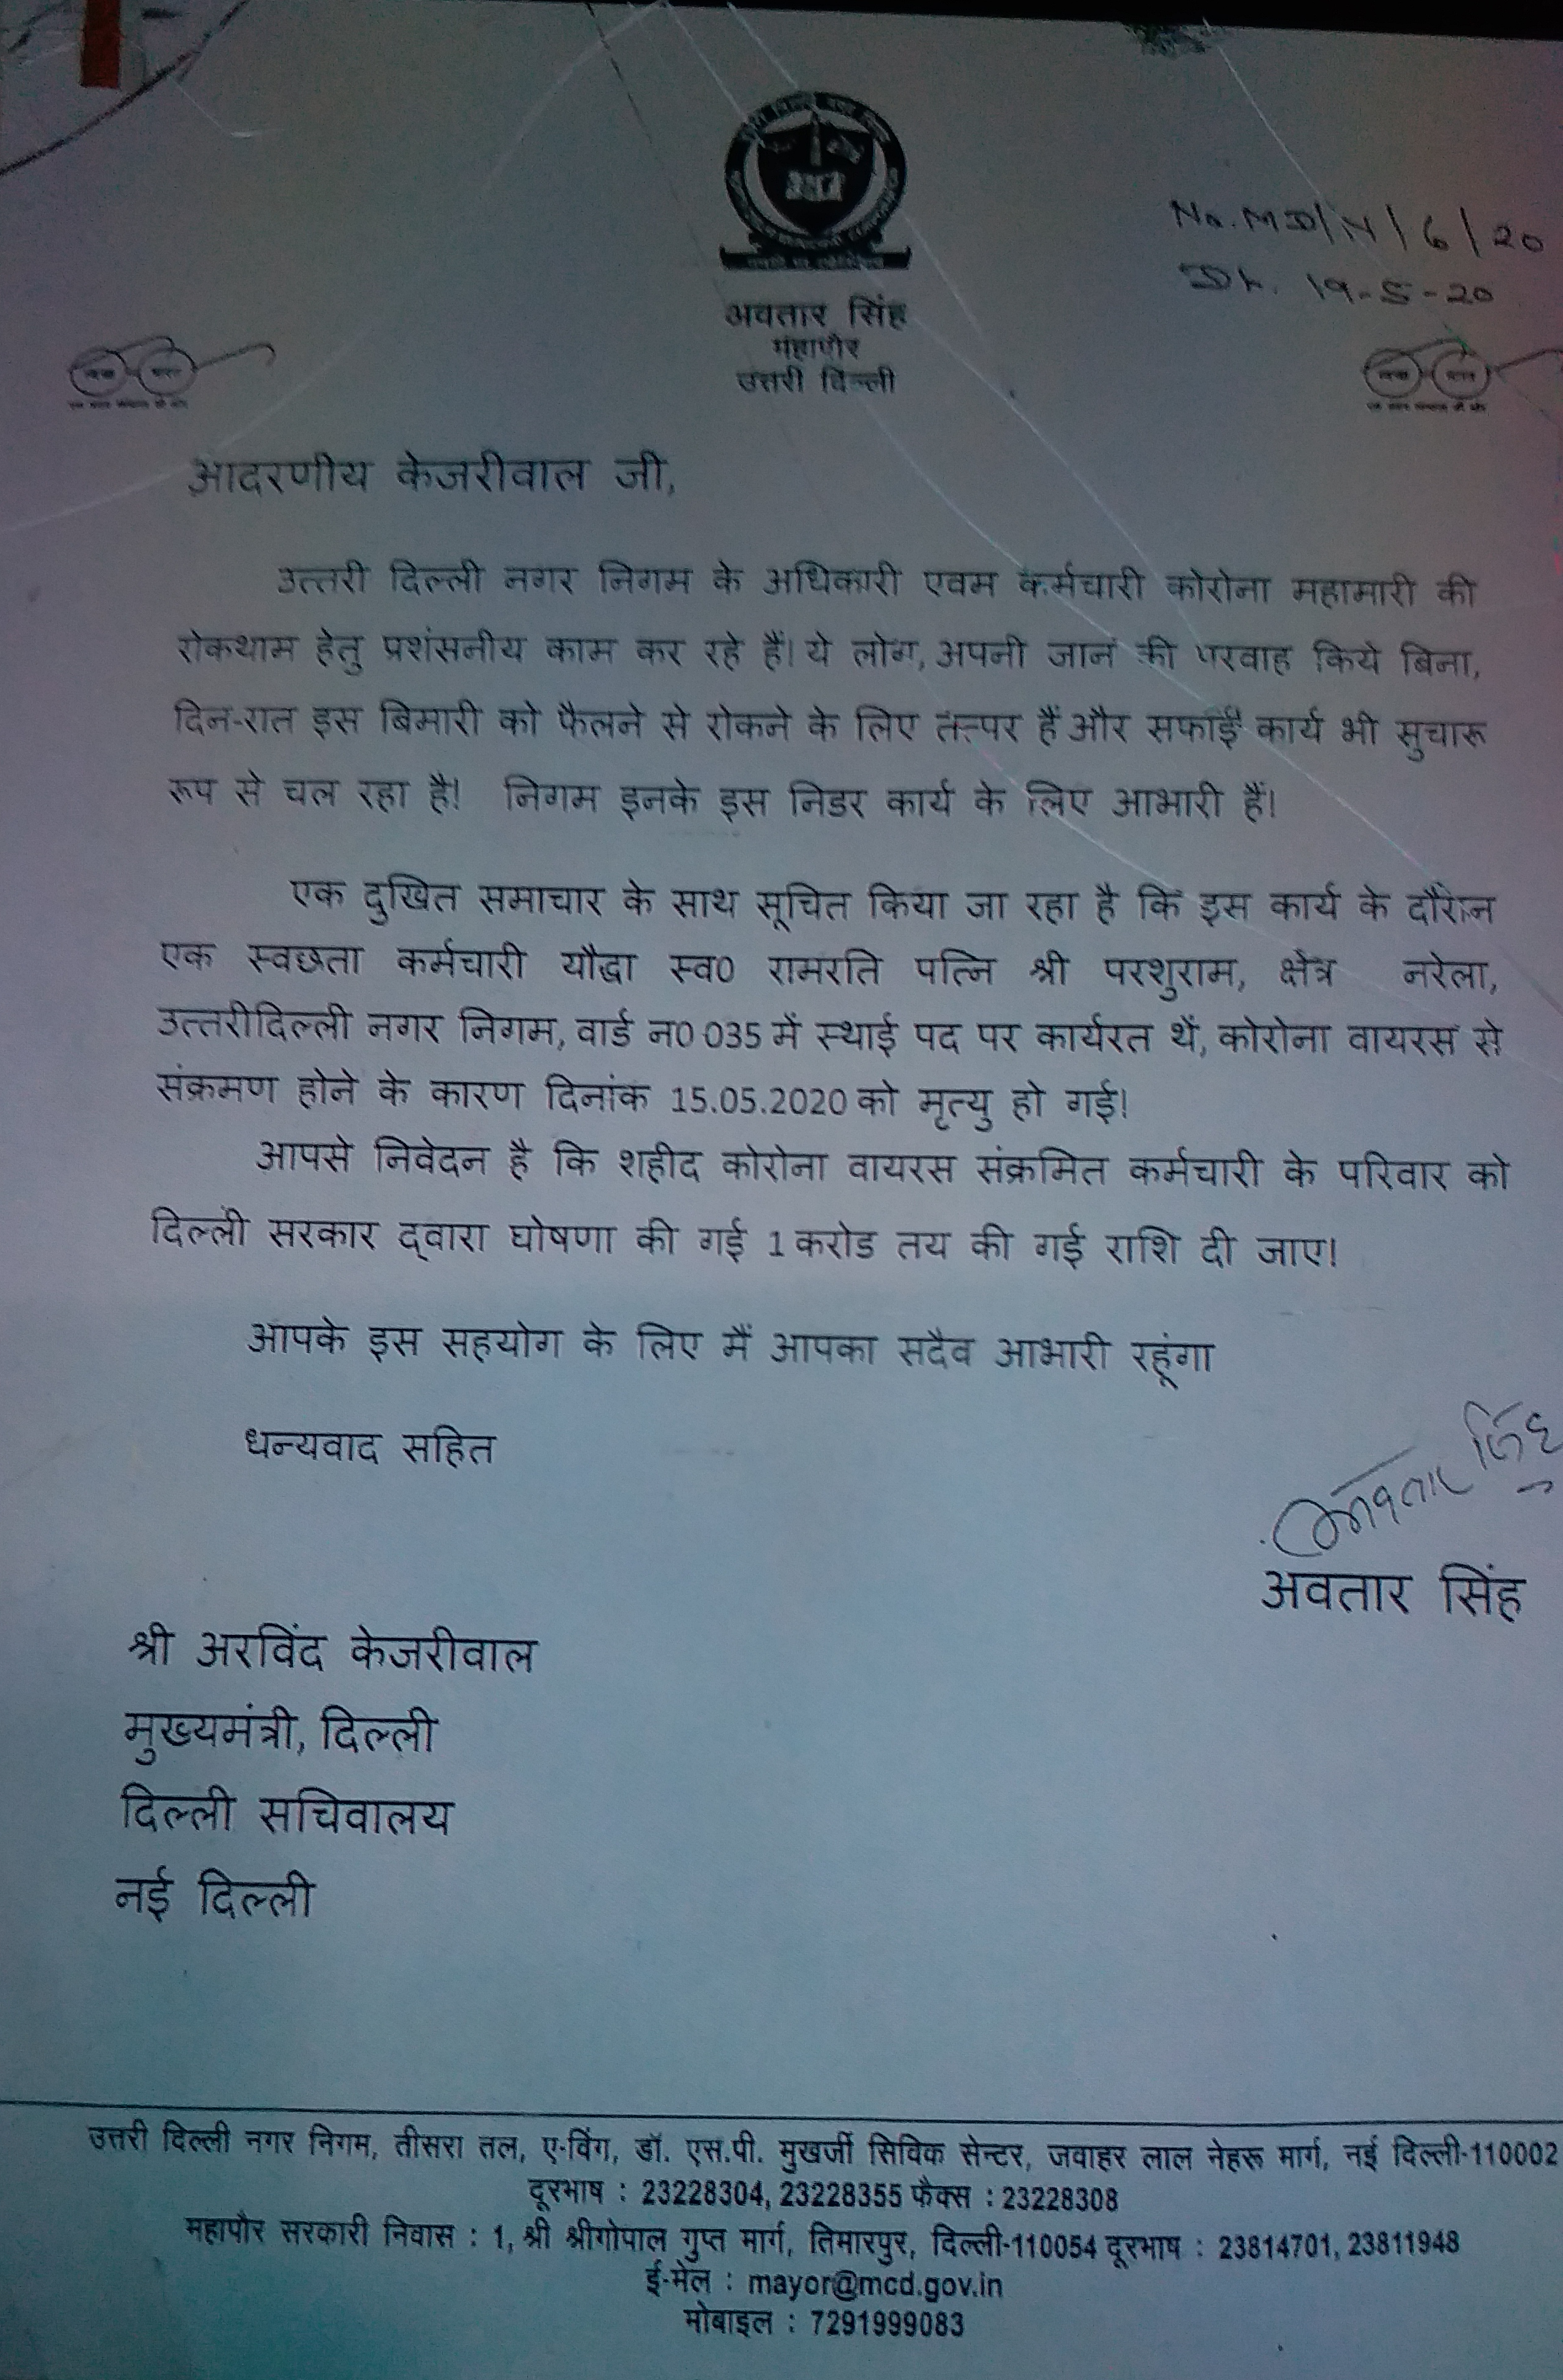 No. MD/N/6/20
Dt. 19-5-20
अवतार सिंह
महापौर
उत्तरी दिल्ली
आदरणीय केजरीवाल जी,
उत्तरी दिल्ली नगर निगम के अधिकारी एवम कर्मचारी कोरोना महामारी की
रोकथाम हेतु प्रशंसनीय काम कर रहे हैं। ये लोग, अपनी जान की परवाह किये बिना,
दिन-रात इस बिमारी को फैलने से रोकने के लिए तत्पर हैं और सफाई कार्य भी सुचारू
रूप से चल रहा है! निगम इनके इस निडर कार्य के लिए आभारी हैं।
एक दुखित समाचार के साथ सूचित किया जा रहा है कि इस कार्य के दौरान
एक स्वछता कर्मचारी यौद्धा स्व0 रामरति पत्नि श्री परशुराम, क्षेत्र नरेला,
उत्तरीदिल्ली नगर निगम, वार्ड न0 035 में स्थाई पद पर कार्यरत थें, कोरोना वायरस से
संक्रमण होने के कारण दिनांक 15.05.2020 को मृत्यु हो गई!
आपसे निवेदन है कि शहीद कोरोना वायरस संक्रमित कर्मचारी के परिवार को
दिल्ली सरकार द्वारा घोषणा की गई 1 करोड तय की गई राशि दी जाए!
आपके इस सहयोग के लिए मैं आपका सदैव आभारी रहूंगा
धन्यवाद सहित
अवतार सिंह
अवतार सिंह
श्री अरविंद केजरीवाल
मुख्यमंत्री, दिल्ली
दिल्ली सचिवालय
नई दिल्ली
उत्तरी दिल्ली नगर निगम, तीसरा तल, ए-विंग, डॉ. एस.पी. मुखर्जी सिविक सेन्टर, जवाहर लाल नेहरू मार्ग, नई दिल्ली-110002
दूरभाष : 23228304, 23228355 फैक्स : 23228308
महापौर सरकारी निवास : 1, श्री श्रीगोपाल गुप्त मार्ग, तिमारपुर, दिल्ली-110054 दूरभाष : 23814701, 23811948
ई-मेल : mayor@mcd.gov.in
मोबाइल : 7291999083